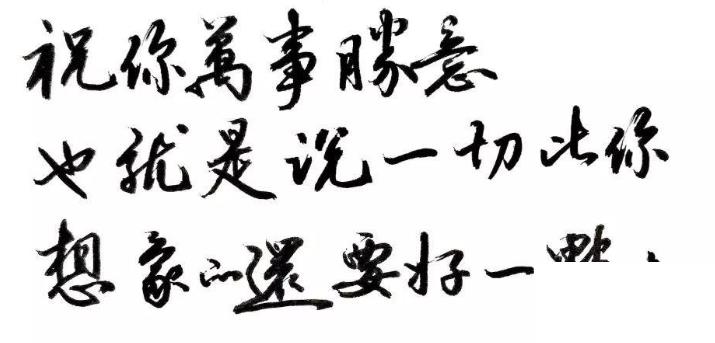 祝你萬事勝意
也就是说一切比你
想象的還要好一